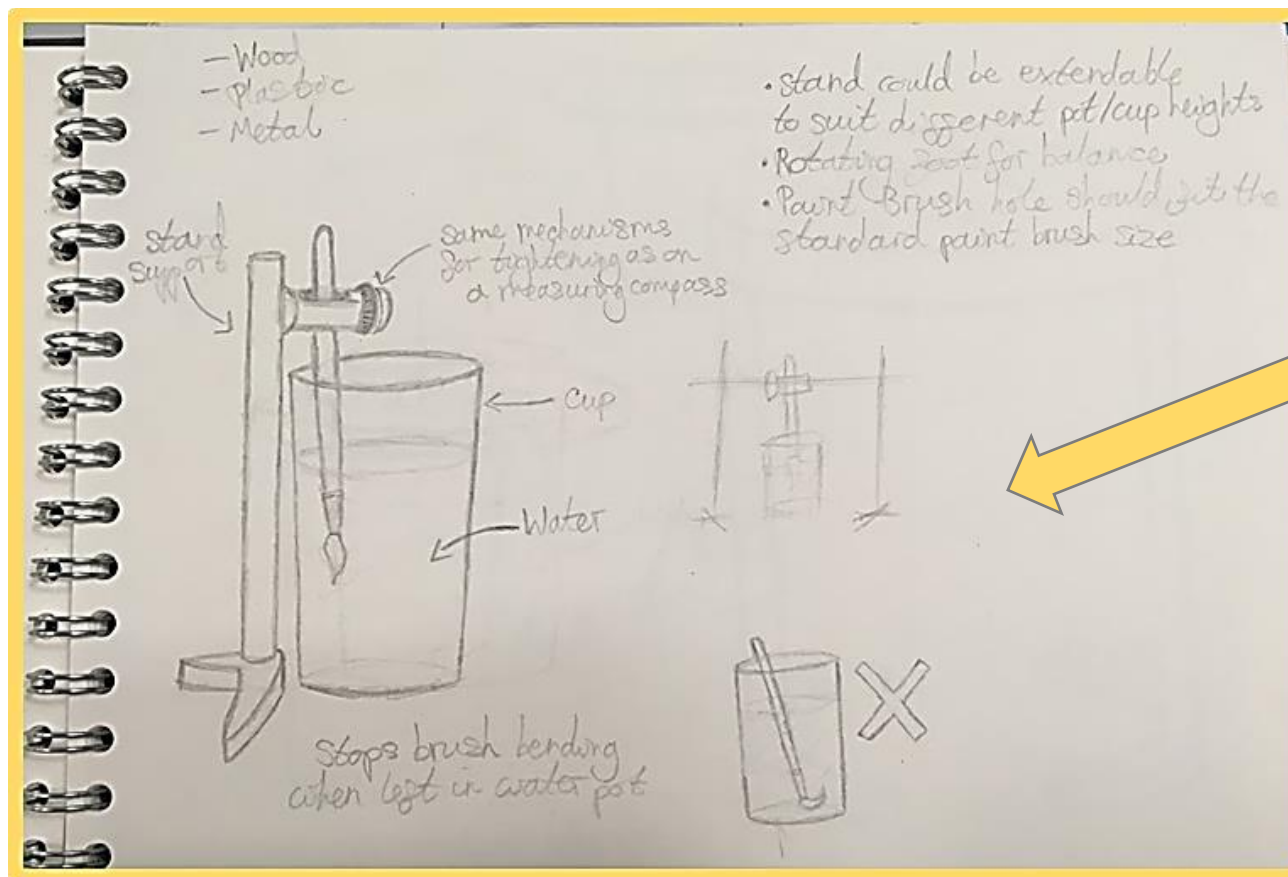 - Wood
- Plastic
- Metal
• Stand could be extendable
to suit different pot/cup heights
• Rotating foot for balance
• Paint Brush hole should fit the
standard paint brush size
stand
support
same mechanisms
for tightening as on
a measuring compass
Cup
Water
Stops brush bending
when left in water pot